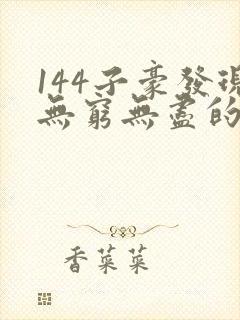 144子豪發現
無窮無盡的
香菜菜